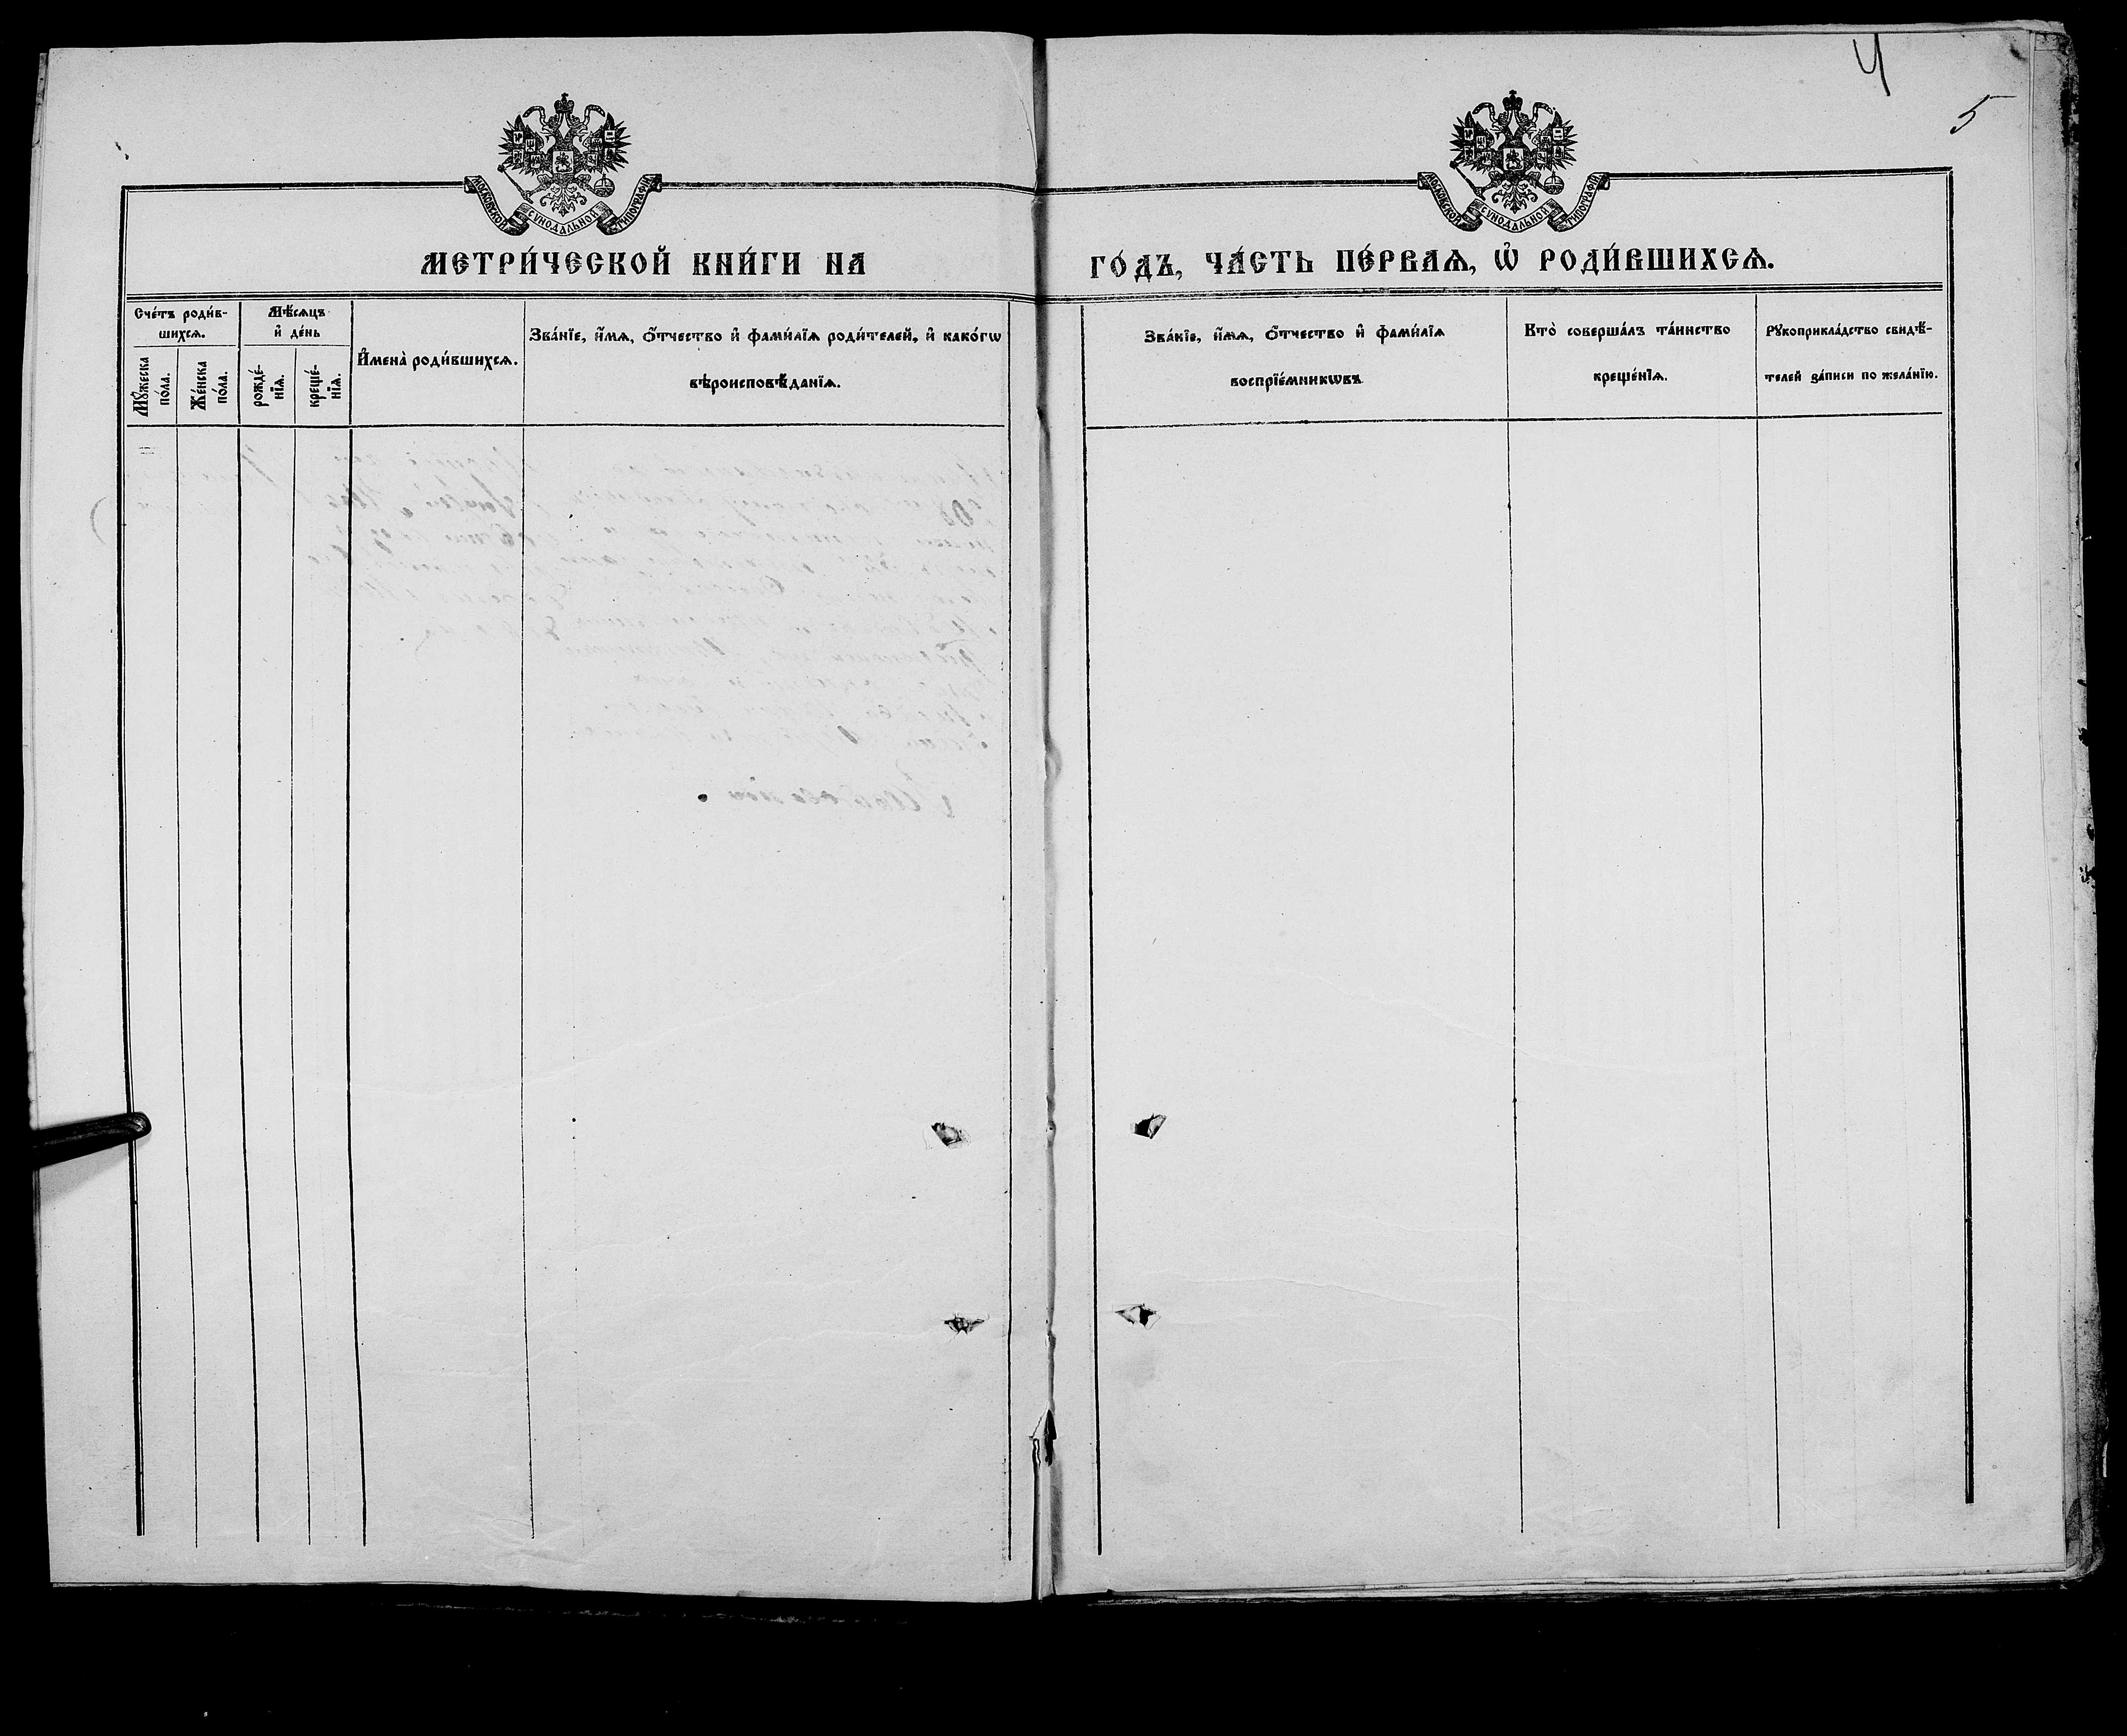 4
5
МОСКОВСКОЙ СѴНОДАЛЬНОЙ ТИПОГРАФІИ
МОСКОВСКОЙ СѴНОДАЛЬНОЙ ТИПОГРАФІИ
МЕТРИ́ЧЕСКОЙ КНИ́ГИ НА
ГО́ДЪ, ЧА́СТЬ ПЕ́РВАѦ, Ѡ҆ РОДИ́ВШИХСѦ.
Сче́тъ роди́в-
шихсѧ.
Мꙋ́жеска
по́ла.
Же́нска
по́ла.
Мѣ́сѧцъ
и҆ де́нь
рожде́-
нїѧ.
креще́-
нїѧ.
И҆мена̀ роди́вшихсѧ.
Зва́нїе, и҆́мѧ, ѻ҆́тчество и҆ фами́лїѧ роди́телей, и҆ како́гѡ
вѣроисповѣ́данїѧ.
Зва́нїе, и҆́мѧ, ѻ҆́тчество и҆ фами́лїѧ
воспрїе́мникѡвъ.
Кто̀ соверша́лъ та́инство
креще́нїѧ.
Рꙋкоприкла́дство свидѣ́-
телей за́писи по жела́нїю.